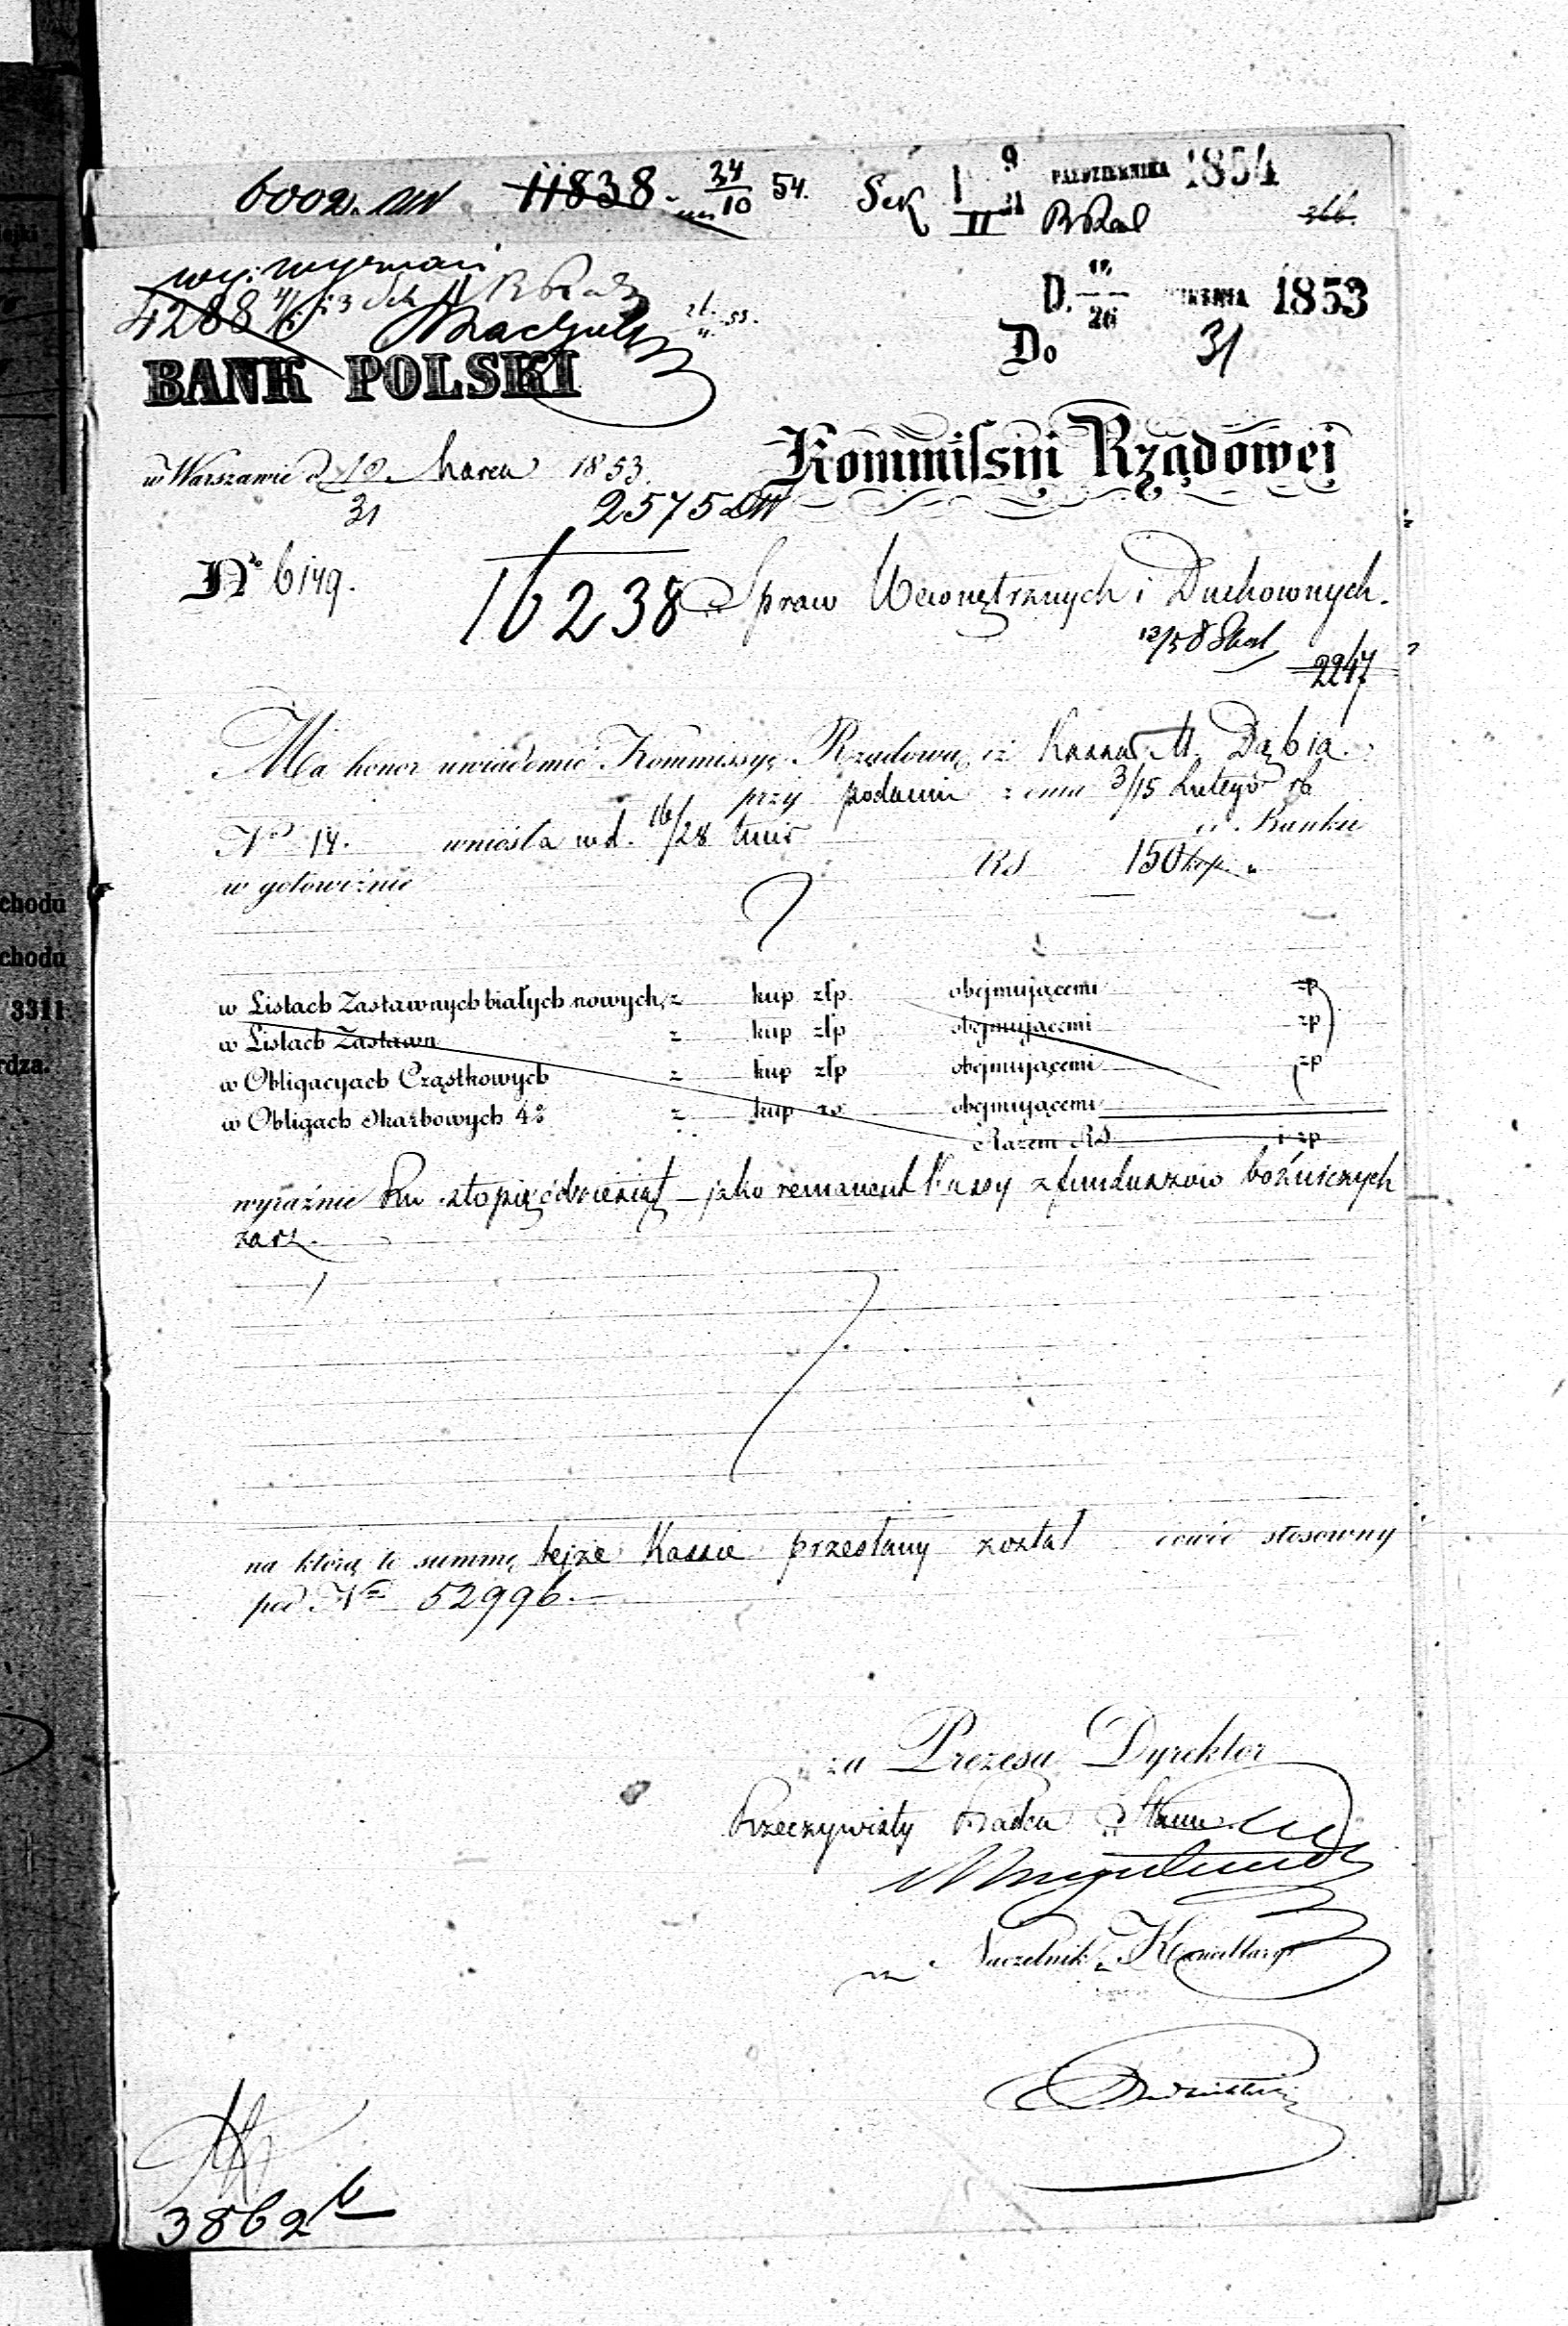 6002. 11838. 34/10 54. Sek I/II 9/21 PAŹDZIERNIKA 1854
366.
4288 D. 26 1853
Do 31
BANK POLSKI
Kommissyi Rządowej
w Warszawie d. 19/31 Marca 1853.
2575
No 6149. 16238 Spraw Wewnętrznych i Duchownych.
2247
Ma honor uwiadomić Kommissyę Rządową iż Kassa M. Dąbia
przy podaniu z dnia 3/15 Lutego rb
No 14. wniosła w d. 16/28 tmir Banku
w gotowiźnie RS 150 kop. "
w Listach Zastawnych białych nowych, z kup złp obejmującemi zp
w Listach Zastawn z kup złp obejmującemi zp
w Obligacyach Cząstkowych z kup złp obejmującemi zp
w Obligach Skarbowych 4% z kup obejmującemi
Razem RS i zp
wyraźnie Rsr stopięćdziesiąt jako remanent Kassy z funduszów bożniczych
zarz.
na którą to summę tejże Kassie przesłany został dowód stosowny
pod No 52996.
za Prezesa Dyrektor
Rzeczywisty Radca Stanu
Naczelnik Kancellaryi
3862
chodu
chodu
3311
rdza.